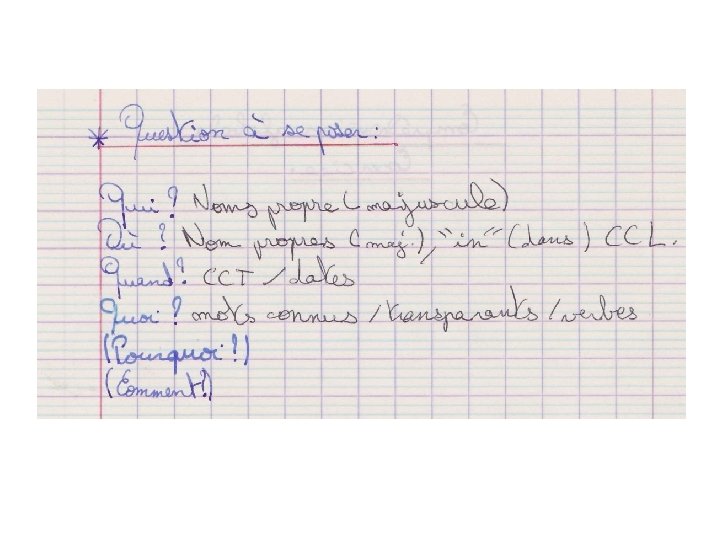 * Question à se poser :
Qui ? Noms propre (majuscule)
Où ? Nom propres (maj.), "in" (dans) CCL.
Quand ? CCT / dates
Quoi ? mots connus / transparants / verbes
(Pourquoi ?)
(Comment ?)